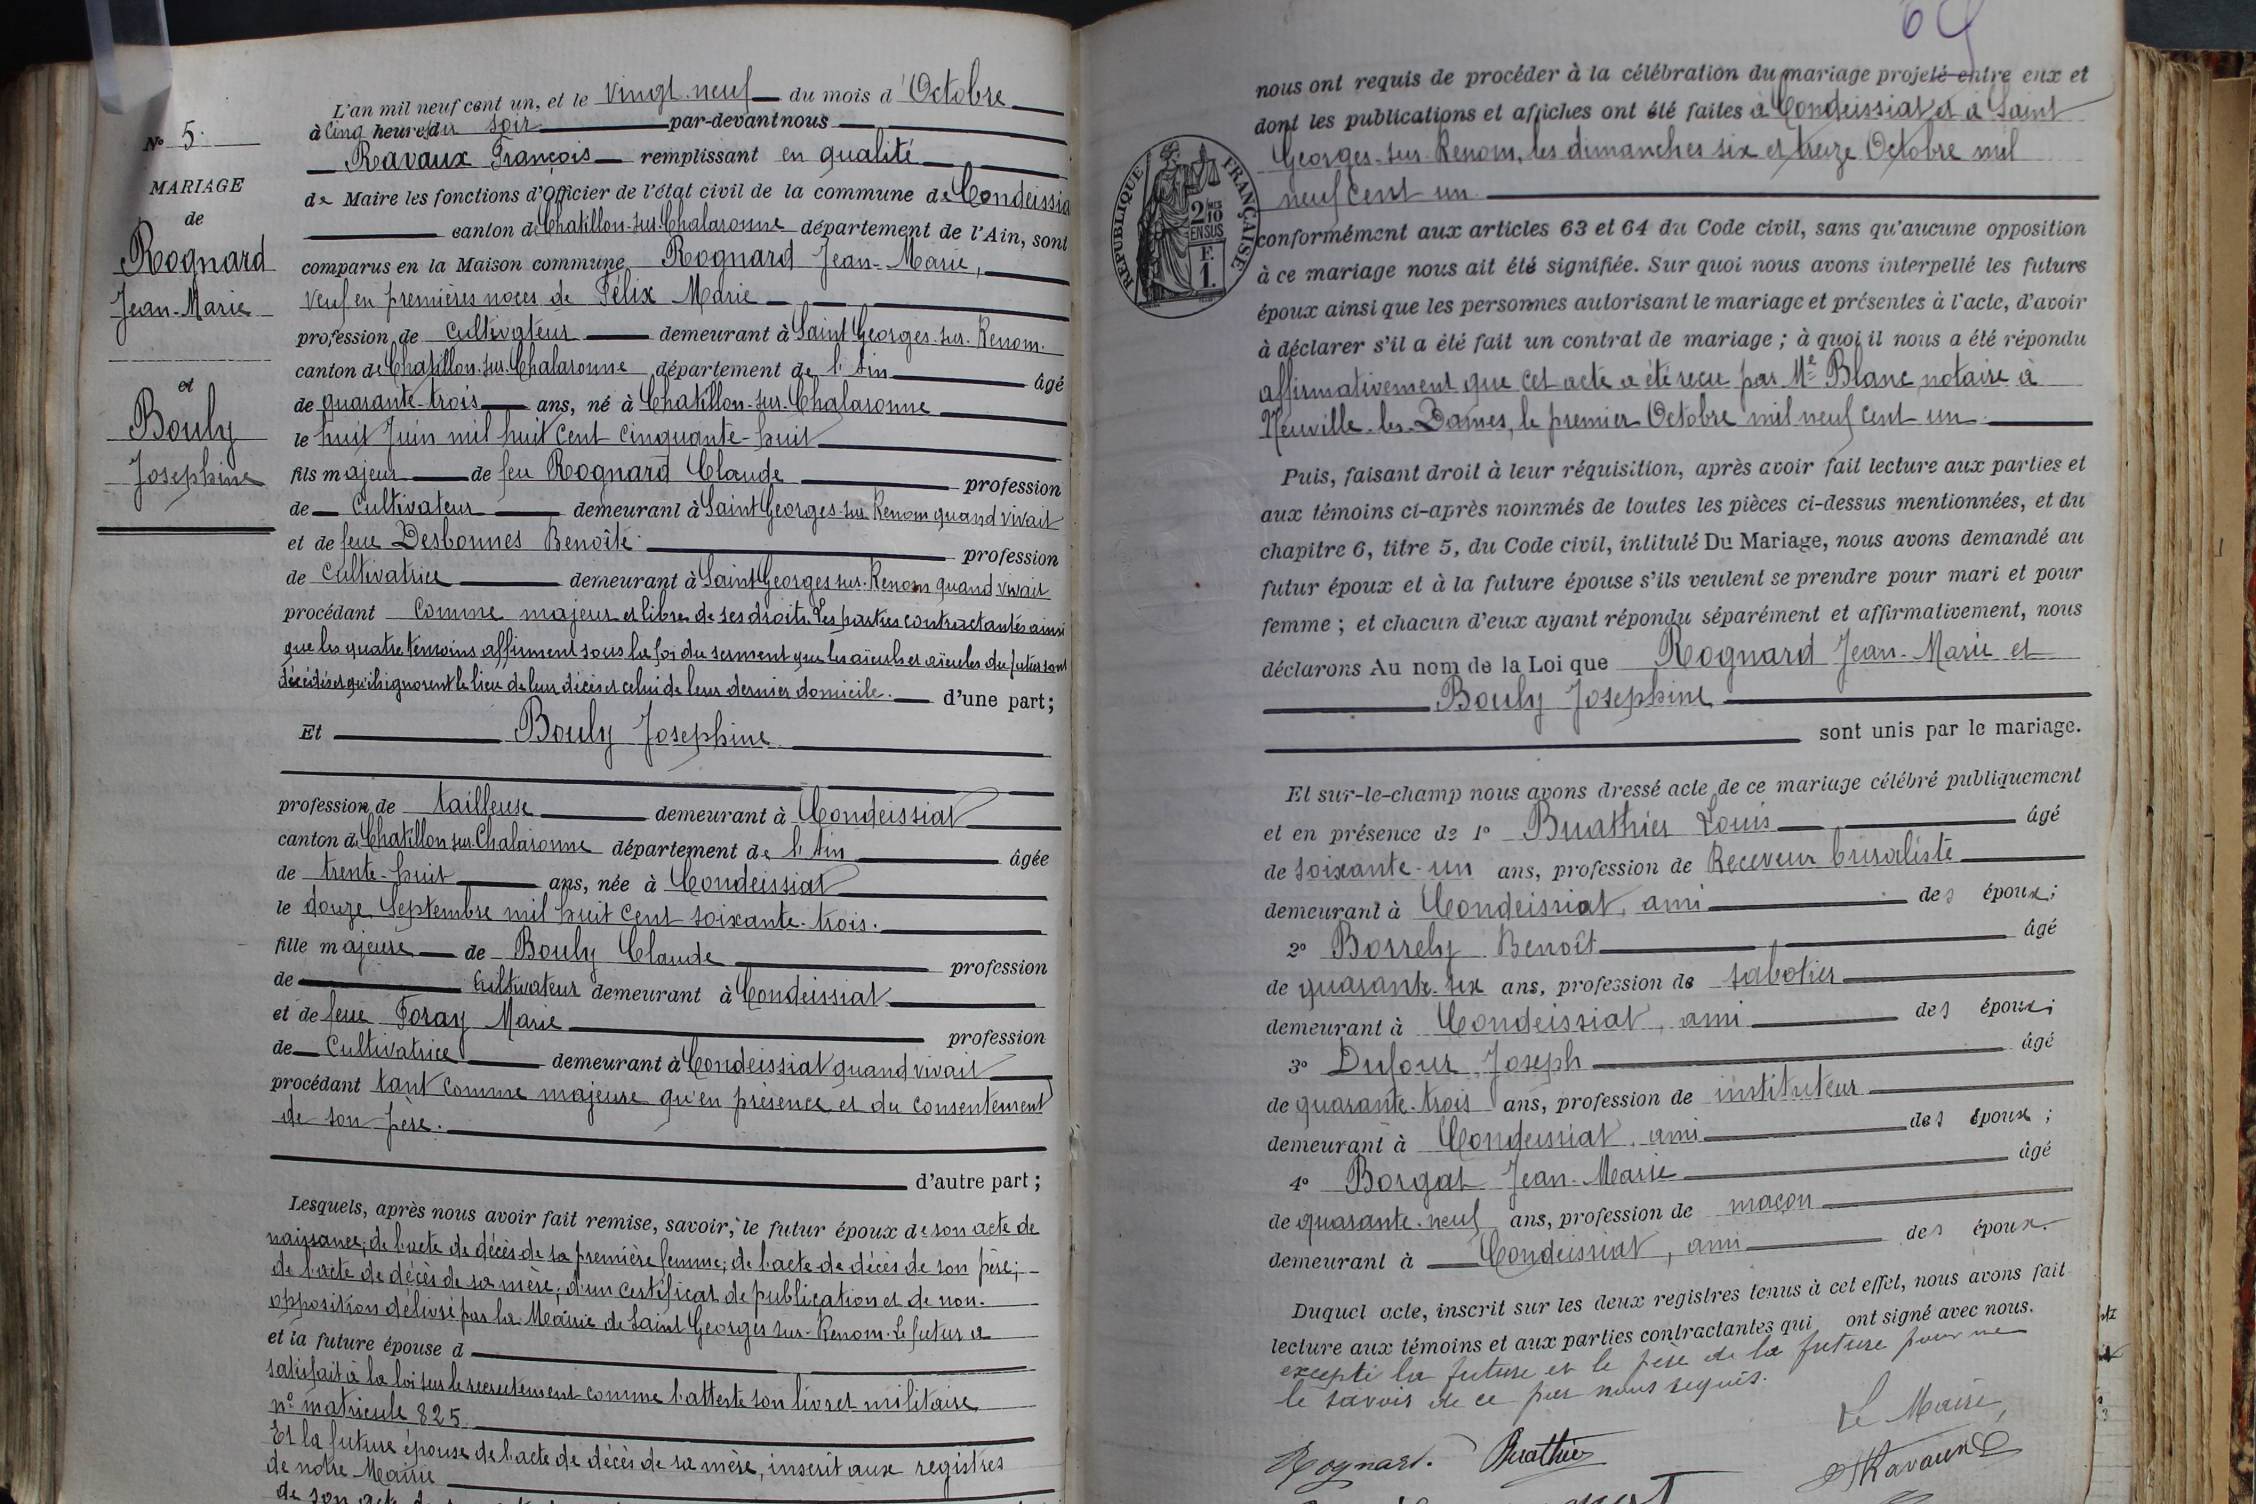 L'an mil neuf cent un, et le vingt-neuf du mois d'Octobre
à cinq heures du soir par-devant nous
Ravaux François remplissant en qualité
de Maire les fonctions d'Officier de l'état civil de la commune de Condeissia
canton de Chatillon-sur-Chalaronne département de l'Ain, sont
comparus en la Maison commune Rognard Jean-Marie,
veuf en premières noces de Félix Marie
profession de cultivateur demeurant à Saint Georges-sur-Renom.
canton de Chatillon-sur-Chalaronne département de l'Ain âgé
de quarante-trois ans, né à Chatillon-sur-Chalaronne
le huit Juin mil huit cent cinquante-huit
fils majeur de feu Rognard Claude profession
de cultivateur demeurant à Saint Georges-sur Renom quand vivait
et de feue Desbonnes Benoîte profession
de cultivatrice demeurant à Saint Georges sur-Renom quand vivait
procédant comme majeur et libre de ses droits. Les parties contractantes ainsi
que les quatre témoins affirment sous la foi du serment que les aïeuls et aïeules du futur sont
décédés et qu'ils ignorent le lieu de leur décès et celui de leur dernier domicile. d'une part;
Et Bouly Josephine
profession de tailleuse demeurant à Condeissiat
canton de Chatillon sur Chalaronne département de l'Ain âgée
de trente-huit ans, née à Condeissiat
le douze Septembre mil huit cent soixante-trois.
fille majeure de Bouly Claude profession
de cultivateur demeurant à Condeissiat
et de feue Foray Marie profession
de cultivatrice demeurant à Condeissiat quand vivait
procédant tant comme majeure qu'en présence et du consentement
de son père.
d'autre part;
Lesquels, après nous avoir fait remise, savoir, le futur époux de son acte de
naissance; de l'acte de décès de sa première femme; de l'acte de décès de son père;
de l'acte de décès de sa mère; d'un certificat de publication et de non-
opposition délivré par la Mairie de Saint Georges sur-Renom. Le futur a
et la future épouse d
satisfait à la loi sur le recrutement comme l'atteste son livret militaire
n° matricule 825.
Et la future épouse de l'acte de décès de sa mère, inscrit aux registres
de notre Mairie
de son acte de
N° 5.
MARIAGE
de
Rognard
Jean-Marie
et
Bouly
Josephine
69
nous ont requis de procéder à la célébration du mariage projeté entre eux et
dont les publications et affiches ont été faites à Condeissiat et à Saint
Georges-sur-Renom, les dimanches six et treize Octobre mil
neuf cent un
REPUBLIQUE FRANÇAISE
2/10
EN SUS
F.
1.
conformément aux articles 63 et 64 du Code civil, sans qu'aucune opposition
à ce mariage nous ait été signifiée. Sur quoi nous avons interpellé les futurs
époux ainsi que les personnes autorisant le mariage et présentes à l'acte, d'avoir
à déclarer s'il a été fait un contrat de mariage; à quoi il nous a été répondu
affirmativement que cet acte a été recu par Me Blanc notaire à
Neuville-les-Dames, le premier Octobre mil neuf cent un.
Puis, faisant droit à leur réquisition, après avoir fait lecture aux parties et
aux témoins ci-après nommés de toutes les pièces ci-dessus mentionnées, et du
chapitre 6, titre 5, du Code civil, intitulé Du Mariage, nous avons demandé au
futur époux et à la future épouse s'ils veulent se prendre pour mari et pour
femme; et chacun d'eux ayant répondu séparément et affirmativement, nous
déclarons Au nom de la Loi que Rognard Jean-Marie et
Bouly Josephine
sont unis par le mariage.
Et sur-le-champ nous avons dressé acte de ce mariage célébré publiquement
et en présence de 1° Buathier Louis âgé
de soixante-un ans, profession de Receveur buraliste
demeurant à Condeissiat, ami des époux;
2° Borrely Benoît âgé
de quarante-six ans, profession de sabotier
demeurant à Condeissiat, ami des époux;
3° Dufour Joseph âgé
de quarante-trois ans, profession de instituteur
demeurant à Condeissiat, ami des époux;
4° Borgat Jean-Marie âgé
de quarante-neuf ans, profession de maçon
demeurant à Condeissiat, ami des époux.
Duquel acte, inscrit sur les deux registres tenus à cet effet, nous avons fait
lecture aux témoins et aux parties contractantes qui ont signé avec nous.
excepté la future et le père de la future pour ne
le savoir de ce par nous requis.
Le Maire,
Rognard. Buathier FRavaux